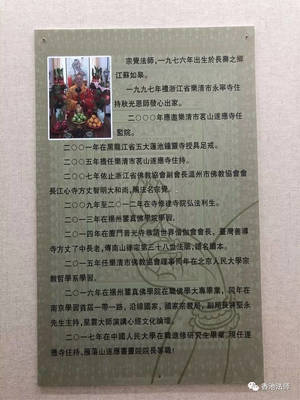 宗覺法師,一九七六年出生於長壽之鄉
江蘇如皋。
一九九七年禮浙江省樂清市永寧寺住
持秋光恩師發心出家。
二〇〇〇年應邀樂清市茗山遂應寺任
監院。
二〇〇一年在黑龍江省五大蓮池鐘靈寺授具足戒。
二〇〇五年擔任樂清市茗山遂應寺住持。
二〇〇七年依止浙江省佛教協會副會長溫州市佛教協會會
長江心寺方丈智明大和尚,賜法名宗覺。
二〇〇九年至二〇一二年在寺修建寺院弘法利生。
二〇一三年在揚州鑒真佛學院學習。
二〇一四年在廈門普光寺禮語世界僧伽會會長,臺灣善導
寺方丈了中長老,傳南山律宗第三十八世法脈,號名續本。
二〇一五年任樂清市佛教協會理事同年在北京人民大學宗
教哲學系學習。
二〇一六年揚州鑒真佛學院在職佛學大專畢業,同年在
南京學習首屆一帶一路,沿線國家,國家宗教局,副局長蔣堅永
先生主持,星雲大師演講心經文化論壇。
二〇一七年在中國人民大學在職進修研究生畢業,現任遂
應寺住持,雁蕩山遂應書畫院院長等職!
香池法師